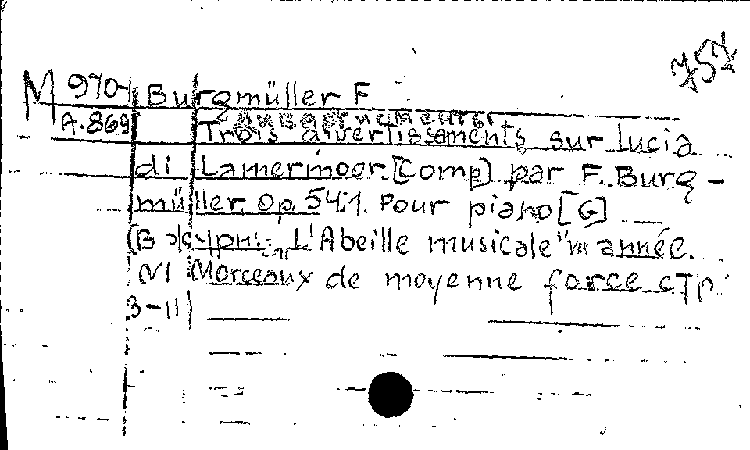 757
M 970 Burgmüller F
A.869 Trois divertissements sur Lucia
di Lamermoor. [Comp] par F. Burg-
müller. Op. 54:1. Pour piano [G]
L'Abeille musicale" III année.
N1 Morceaux de moyenne force стр.
3-11)